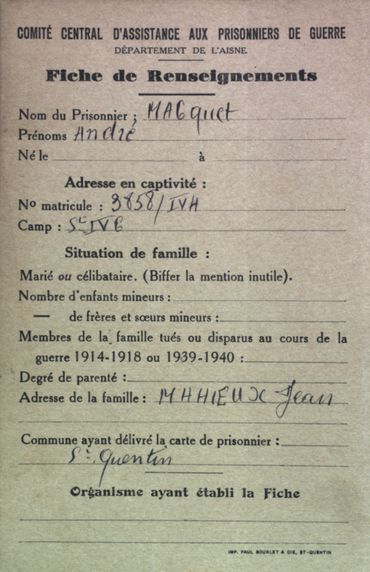 COMITÉ CENTRAL D'ASSISTANCE AUX PRISONNIERS DE GUERRE
DÉPARTEMENT DE L'AISNE
Fiche de Renseignements
Nom du Prisonnier : MACquet
Prénoms André
Né le à
Adresse en captivité :
No matricule : 3858/IVA
Camp : St IVC
Situation de famille :
Marié ou célibataire. (Biffer la mention inutile).
Nombre d'enfants mineurs :
— de frères et sœurs mineurs :
Membres de la famille tués ou disparus au cours de la
guerre 1914-1918 ou 1939-1940 :
Degré de parenté :
Adresse de la famille : MAHIEUX Jean
Commune ayant délivré la carte de prisonnier :
St. Quentin
Organisme ayant établi la Fiche
IMP. PAUL BOURLET & CIE, ST-QUENTIN